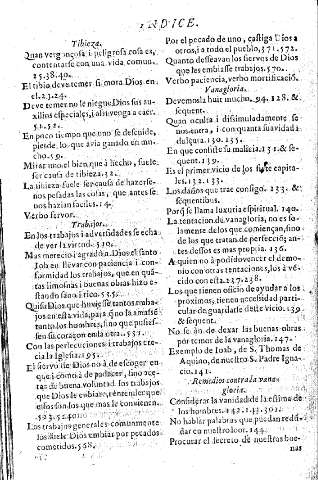 INDICE.
Tibieza.
Quan vergonçosa i peligrosa cosa es,
contentarse con una vida comun.
25.38.40.
El tibio deve temer si mora Dios en
el. 23.24.
Deve temer no le niegue Dios sus au
xilios especiales, i assi venga a caer.
51.52.
En poco tiempo que uno se descuide,
pierde lo que avia ganado en mu-
cho. 59.
Mirar uno el bien que à hecho, suele
ser causa de tibieza. 32.
La tibieza suele ser causa de hazerse-
nos pesadas las cosas, que antes se
nos hazian faciles. 14.
Verbo fervor.
Trabajos.
En los trabajos i adversidades se echa
de ver la virtud. 510.
Mas mereciò i agradò a Dios el santo
Job en llevar con paciencia i con-
formidad los trabajos, que en quã-
tas limosnas i buenas obras hizo e-
stando sano i rico. 535.
Quiso Dios que huviesse tantos traba-
jos en esta vida, para q̃ no la amasse
tanto los hombres, sino que pusies-
sen su coraçon en la otra. 531.
Con las persecuciones i trabajos cre-
cia la Iglesia. 195.
El siervo de Dios no à de escoger en
que i como à de padecer, sino acep-
tar de buena voluntad los trabajos
que Dios le embiare, entender que
essos son los que mas le convienen.
523.524.
Los trabajos generales comunmente
los suele Dios embiar por pecados
cometidos. 568.
Por el pecado de uno, castiga Dios a
otros, i a todo el pueblo, 571.572.
Quanto desseavan los siervos de Dios
que les embiasse trabajos. 570.
Verbo paciencia, verbo mortificaciõ.
Vanagloria.
Devemosla huir mucho. 94. 128. &
sequent.
Quan oculta i dissimuladamente se
nos entra, i con quanta suavidad i
dulçura. 130. 135.
En que consiste su malicia. 131. &
sequent. 139.
Es el primer vicio de los siete capita-
les. 132. 133.
Los daños que trae consigo. 133. &
sequentibus.
Porq̃ se llama luxuria espiritual. 140.
La tentacion de vanagloria, no es so-
lamente de los que comiençan, sino
de los que tratan de perfecciõ; an-
tes dessos es mas propria. 136.
A quien no à podido vencer el demo-
nio con otras tentaciones, los à vẽ-
cido con esta. 137.238.
Los que tienen oficio de ayudar a los
proximos, tienen necessidad parti-
cular de guardarse deste vicio. 139
& sequent.
No se àn de dexar las buenas obras
por temor de la vanagloria. 147.
Exemplo de Ioab, de S. Thomas de
Aquino, de nuestro S. Padre Igna-
cio. 141.
Remedios contra la vana
gloria.
Considerar la vanidad de la estima de
los hombres. 142.143.501.
No hablar palabras que puedan redũ-
dar en nuestro loor. 144.
Procurar el secreto de nuestras bue-
nas